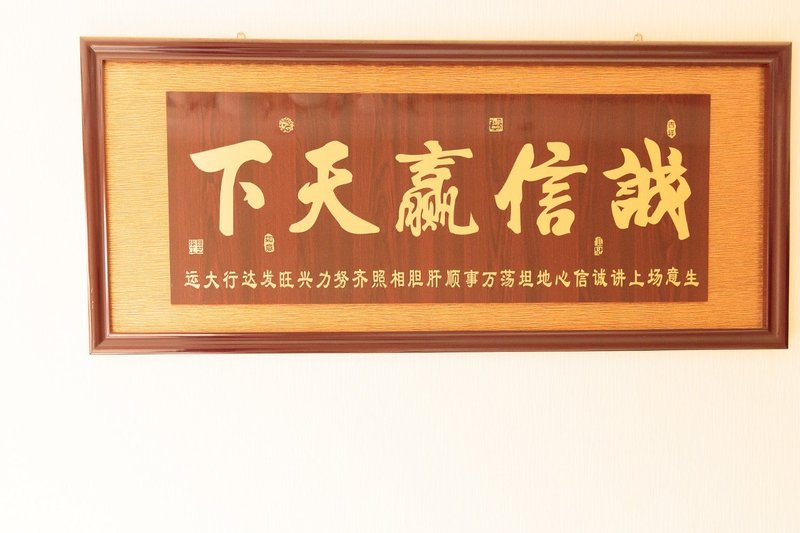 誠信赢天下
生意场上讲诚信心地坦荡万事顺肝胆相照齐努力兴旺发达行大运